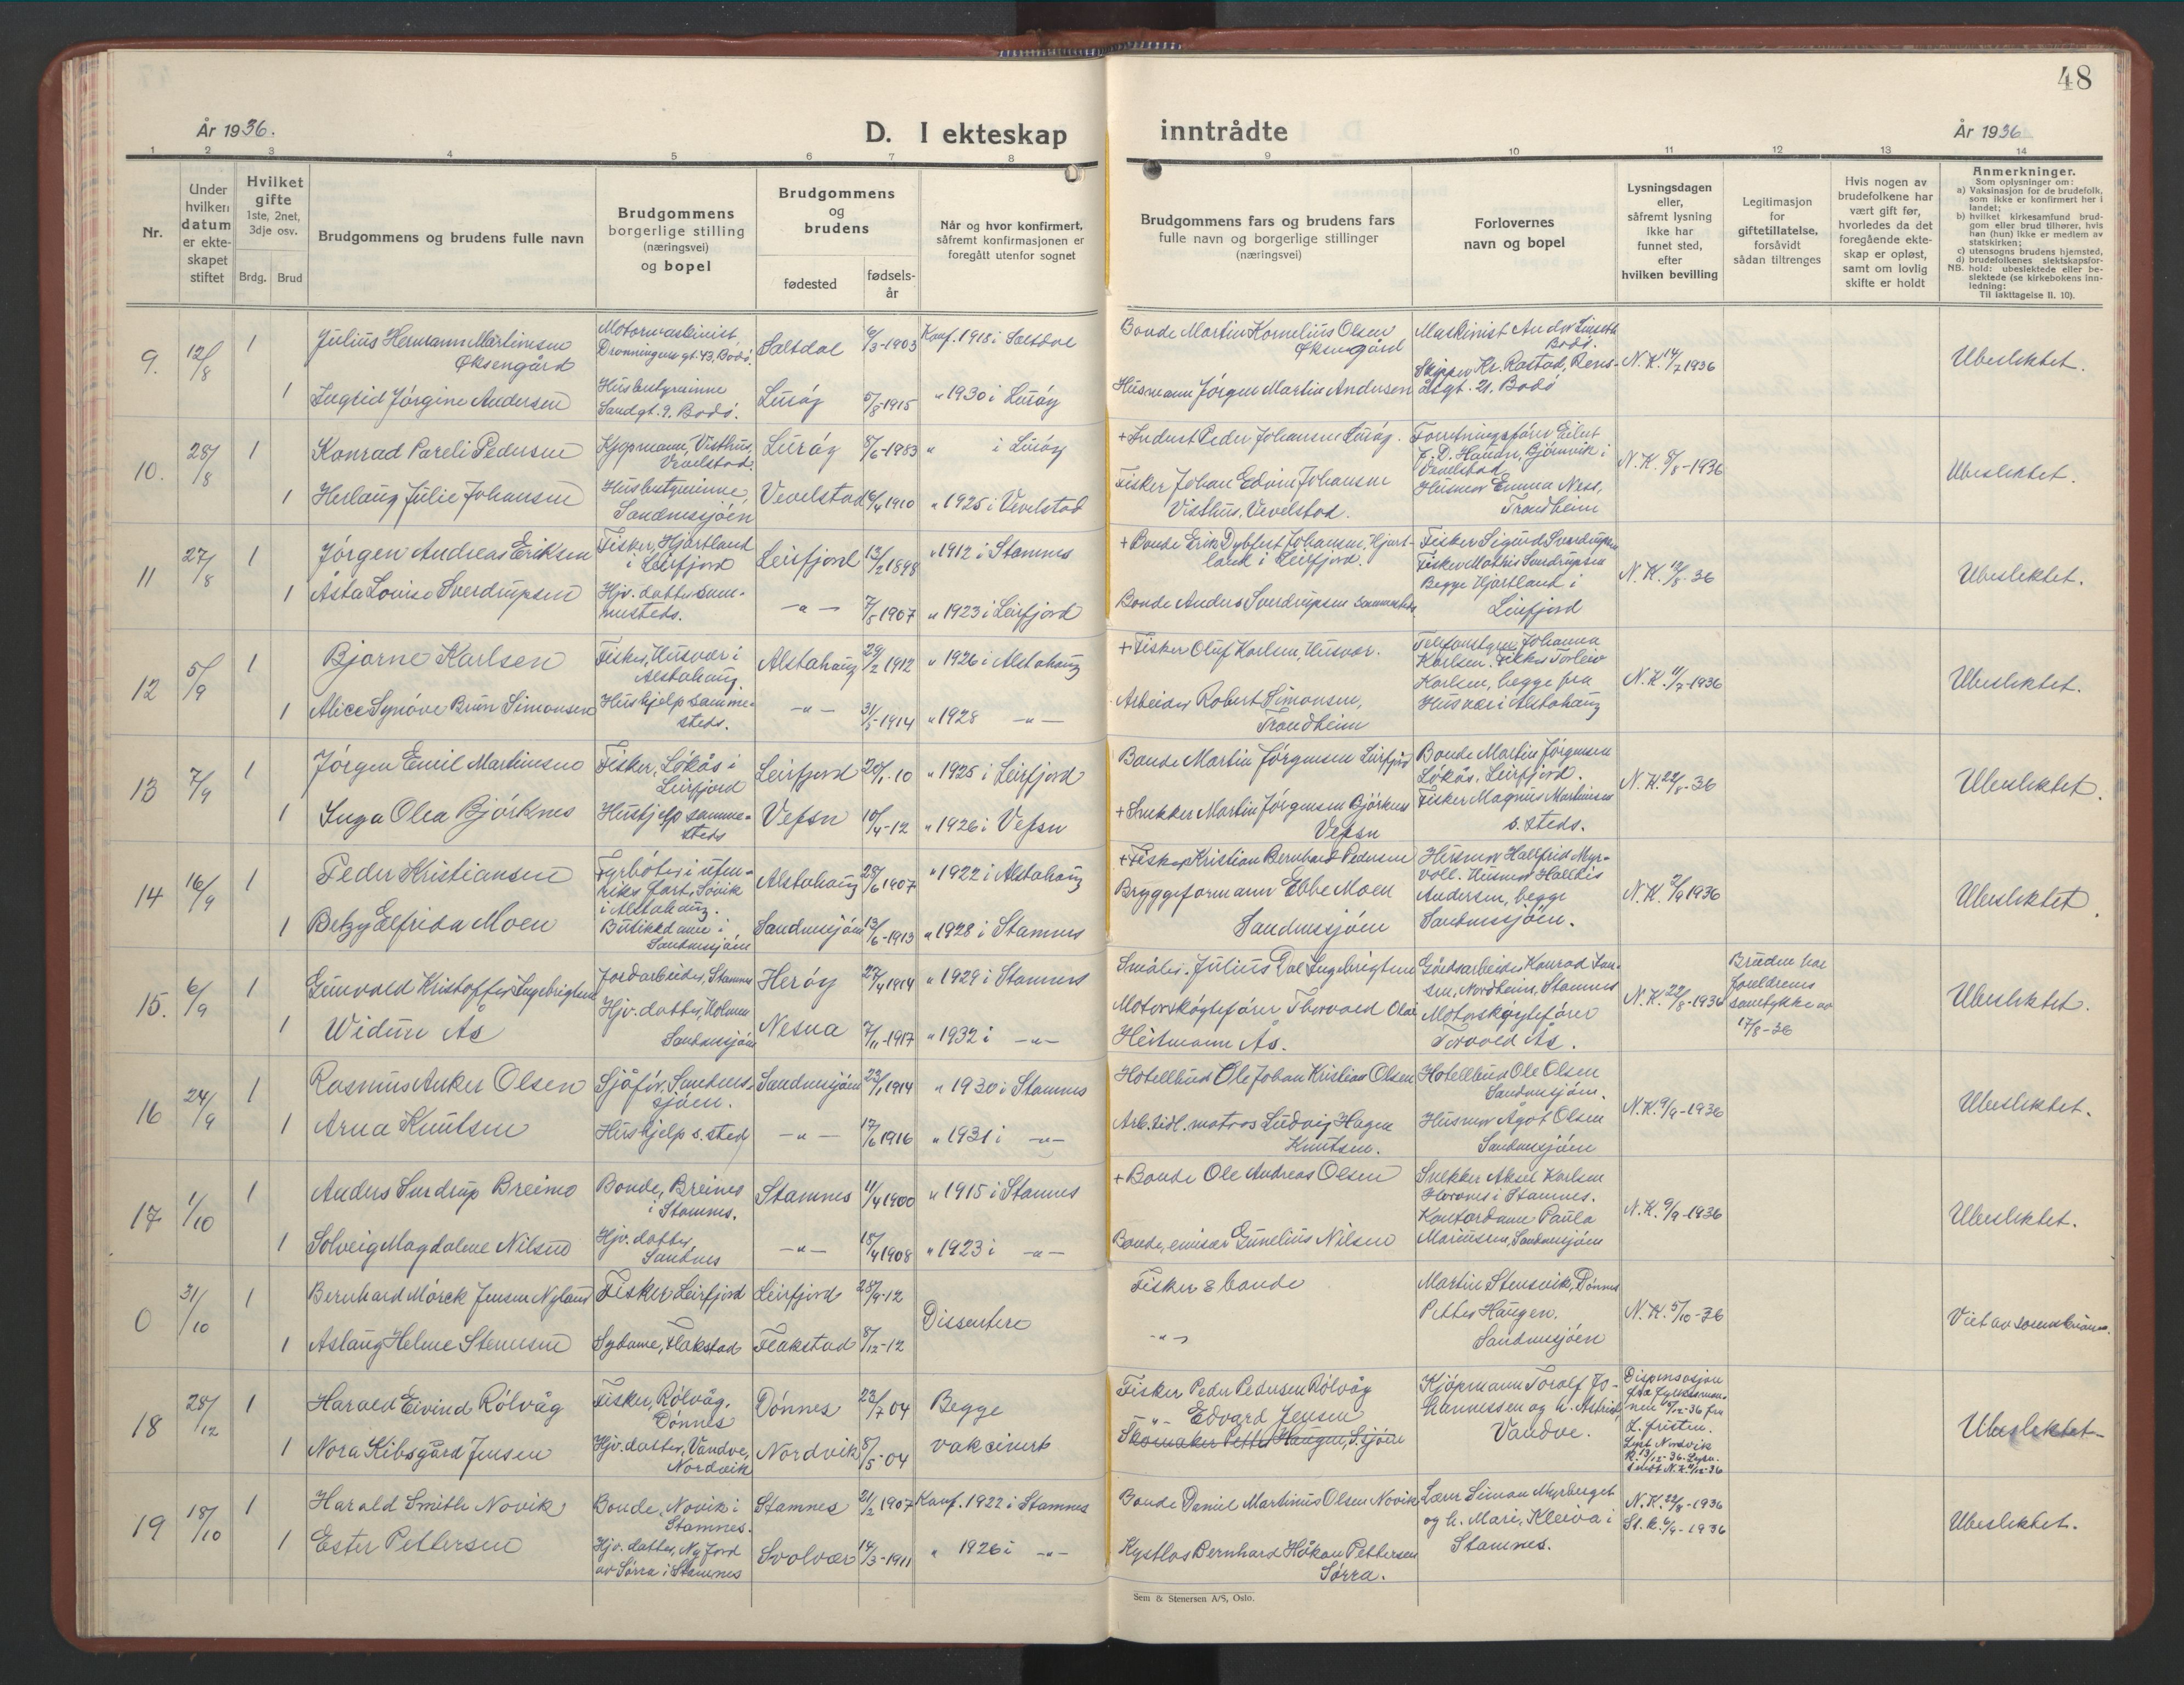 48
År 1936.
D. I ekteskap inntrådte
År 1936
1 2 3 4 5 6 7 8 9 10 11 12 13 14
Nr.
Under hvilken datum er ekteskapet stiftet
Hvilket gifte
1ste, 2net, 3dje osv.
Brdg. Brud
Brudgommens og brudens fulle navn
Brudgommens borgerlige stilling (næringsvei) og bopel
Brudgommens og brudens
fødested
fødsels-år
Når og hvor konfirmert, såfremt konfirmasjonen er foregått utenfor sognet
Brudgommens fars og brudens fars fulle navn og borgerlige stillinger (næringsvei)
Forlovernes navn og bopel
Lysningsdagen eller, såfremt lysning ikke har funnet sted, efter hvilken bevilling
Legitimasjon for giftetillatelse, forsåvidt sådan tiltrenges
Hvis nogen av brudefolkene har vært gift før, hvorledes da det foregående ekteskap er opløst, samt om lovlig skifte er holdt
Anmerkninger.
Som oplysninger om:
a) Vaksinasjon for de brudefolk, som ikke er konfirmert her i landet;
b) hvilket kirkesamfund brudgom eller brud tilhører, hvis han (hun) ikke er medlem av statskirken;
c) utensogns brudens hjemsted,
d) brudefolkenes slektskapsforhold: ubeslektede eller beslektede (se kirkebokens Innledning:
NB.
Til iakttagelse II. 10).
9. 12/8 1 Julius Hermann Martinsen Øksengård
Motormaskinist, Dronningens gt. 43, Bodö.
Saltdal 6/3-1903 Konf. 1918 i Saltdal
Bonde Martin Kornelius Olsen Øksengård
Maskinist Andor Bodö.
N.K. 14/7 1936
Ubeslektet.
1 Ingrid Jörgine Andersen
Husbestyrinne Sandgt. 9. Bodö.
Luröy 5/8-1915 " 1930 i Luröy
Husmann Jörgen Martin Andersen
Skipper Kr. Rastad, gt. 21. Bodö
10. 28/8 1 Konrad Pareli Pedersen
Kjøpmann, Visthus, Vevelstad.
Luröy 8/6-1983 " i Luröy
+ Peder Johansen Luröy.
Forretningsförer Eilert Björnvik i Vevelstad
N.K. 8/8-1936
Ubeslektet.
1 Herlaug Julie Johansen
Husbestyrinne, Sandnessjöen
Vevelstad 6/4 1910 " 1925 i Vevelstad
Fisker Johan Edvin Johansen Visthus, Vevelstad.
Husmor Emma Ness, Trondheim
11 27/8 1 Jörgen Andreas Eriksen
Fisker, Hjartland i Leirfjord
Leirfjord 13/2 1898 " 1912 i Stamnes
+ Bonde Erik Dybfest Johansen, Hjartland i Leirfjord.
Fisker Sigurd Sverdrupsen
Fisker Mathis Sverdrupsen
Begge Hjartland i Leirfjord
N.K. 12/8-36
Ubeslektet.
1 Asta Lovise Sverdrupsen
Hjv. datter sammesteds.
-"- 7/5 1907 " 1923 i Leirfjord
Bonde Anders Sverdrupsen sammesteds
12 5/9 1 Bjarne Karlsen
Fisker, Husvær i Alstahaug
Alstahaug 29/2 1912 " 1926 i Alstahaug
+ Fisker Oluf Karlsen, Husvær.
Telefonstyrer Johanna Karlsen. Fisker Torleiv Karlsen, begge fra Husvær i Alstahaug
N.K. 11/7-1936
Ubeslektet.
1 Alice Synöve Brun Simonsen
Hushjelp sammesteds.
-"- 31/5-1914 " 1928 -"-
Arbeider Robert Simonsen, Trondheim
13 7/9 1 Jörgen Emil Martinsen
Fisker, Lökås i Leirfjord
Leirfjord 20/1-10 " 1925 i Leirfjord
Bonde Martin Jörgensen Leirfjord
Bonde Martin Jörgensen Lökås, Leirfjord.
N.K. 22/8-36
Ubeslektet.
1 Inga Olea Björknes
Hushjelp sammesteds
Vefsn 10/4-12 " 1926 i Vefsn
+ Snekker Martin Jörgensen Björknes Vefsn
Fisker Magnus Martinsen s. steds.
14 16/9 1 Peder Kristiansen
Fyrböter i utenriks fart, Sövik i Alstahaug.
Alstahaug 28/6 1907 " 1922 i Alstahaug
+ Fisker Kristian Bernhard Pedersen
Husmor Hallfrid Myrvoll. Husmor Halldis Andersen, begge Sandnessjöen.
N.K. 2/9 1936
Ubeslektet.
1 Betzy Elfrida Moen
Butikkdame i Sandnessjöen
Sandnessjöen 13/6-1913 " 1928 i Stamnes
Bryggeformann Ebbe Moen Sandnessjöen
15. 6/9 1 Gunvald Kristoffer Ingebrigtsen
Jordarbeider, Stamnes
Heröy 27/4 1914 " 1929 i Stamnes
Småbr. Julius Dal Ingebrigtsen
Gårdsarbeider Konrad Jansen, Nordheim, Stamnes
N.K. 22/8-1936
Bruden har foreldrenes samtykke av 17/8-36
Ubeslektet.
1 Widun Ås
Hjv. datter, Holmen Sandnessjöen
Nesna 7/11-1917 " 1932 i -"-
Motorskøytefører Thorvald Olai Heitmann Ås.
Motorskøytefører Torvald Ås.
16 24/9 1 Rasmus Anker Olsen
Sjåför, Sandnessjöen.
Sandnessjöen 23/1 1914 " 1930 i Stamnes
Hotellbud Ole Johan Kristian Olsen
Hotellbud Ole Olsen Sandnessjöen.
N.K. 9/9-1936
Ubeslektet.
1 Arna Knutsen
Hushjelp s. sted
-"- 17/6 1916 " 1931 i -"-
Arb. tidl. matros Ludvig Hagen Knutsen.
Husmor Ågot Olsen Sandnessjöen
17 1/10 1 Anders Surdrup Breimo
Bonde, Breimo i Stamnes.
Stamnes 11/4 1900 " 1915 i Stamnes
+ Bonde Ole Andreas Olsen
Snekker Aksel Karlsen i Stamnes.
Kontordame Paula Mariusen, Sandnessjöen
N.K. 9/9-1936
Ubeslektet.
1 Solveig Magdalene Nilsen
Hjv. datter, Sandnes
-"- 15/4 1908 " 1923 i -"-
Bonde, emisær Gunelius Nilsen
0 31/10 1 Bernhard Mörck Jensen Nyland
Fisker Leirfjord
Leirfjord 28/9-12
Dissentere
Fisker & bonde
Martin Stensvik, Dönnes
Petter Haugen, Sandnessjöen
N.K. 5/10-36
Viet av sorenskriveren.
1 Aslaug Helene Stenersen
Sydame, Flakstad
Flakstad 8/12-12
-"-
18 28/12 1 Harald Eivind Rölvåg
Fisker, Rölvåg, Dönnes
Dönnes 23/7 04 Begge vaksinert
Fisker Peder Pedersen Rölvåg
-"- Edvard Jensen
Skomaker Petter Haugen, S.sjöen
Kjöpmann Toralf Johannessen og h. Astrid, Vandve.
Dispensasjon fra 9/12-36 fra l. fristen.
Lyst Nordvik K. 13/12-36.
Ubeslektet
1 Nora Kibsgård Jensen
Hjv. datter, Vandve, Nordvik
Nordvik 8/5-04
19 18/10 1 Harald Smith Novik
Bonde, Novik i Stamnes.
Stamnes 21/2 1907 Konf. 1922 i Stamnes
Bonde Daniel Martinus Olsen Novik
Lærer Simon Myrberget og h. Mari, Kleiva i Stamnes.
N.K. 22/8-1936
St. K. 6/9-1936
Ubeslektet.
1 Ester Pettersen
Hjv. datter, Nyjord av Sörra i Stamnes
Svolvær 14/3-1911 " 1926 i -"-
Kystlos Bernhard Håkon Pettersen Sörra.
Sem & Stenersen A/S, Oslo.